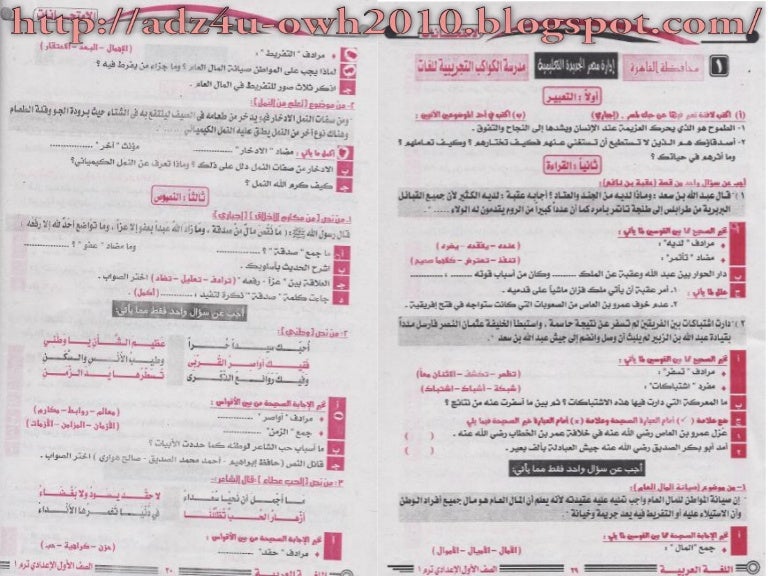 http://adz4u-owh2010.blogspot.com
١
محافظة القاهرة
إدارة مصر الجديدة التعليمية
مدرسة الكواكب التجريبية للغات
أولاً : التعبير
(ب) اكتب في أحد الموضوعين الآتيين :
١- الطموح هو الذي يحرك العزيمة عند الإنسان ويشدها إلى النجاح والتفوق .
٢- أصدقاؤك هم الذين لا تستطيع أن تستغني عنهم فكيف تختارهم ؟ وكيف تعاملهم ؟
وما أثرهم في حياتك ؟
ثانياً : القراءة
أجب عن سؤال واحد من قصة (عقبة بن نافع):
(١) " قال عبد الله بن سعد : وماذا لديه من الجند والعتاد ؟ أجابه عقبة : لديه الكثير لأن جميع القبائل
البربرية من طرابلس إلى طنجة تأتمر بأمره كما أن عدداً كبيراً من الروم يقدمون له الولاء .... " .
أ
تخير الصحيح مما بين القوسين مما يأتي :
مرادف " لديه" :
(عنده – يفقده – يفرد)
مضاد " تأتمر" :
ب
دار الحوار بين عبد الله وعقبة عن الملك ............ وكان من أسباب قوته ............
ج
علل لما يأتي :
١. أمر عقبة أن يأتي ملك فزان ماشياً على قدميه .
٢. عدم خوف عمرو بن العاص من الصعوبات التي كانت ستواجه في فتح إفريقية .
(٢) " دارت اشتباكات بين الفريقين لم تسفر عن نتيجة حاسمة ، واستبطأ الخليفة عثمان النصر فأرسل مدداً
بقيادة عبد الله بن الزبير لم يلبث أن وصل وانضم إلى جيش عبد الله بن سعد "
أ
تخير الصحيح مما بين القوسين مما يأتي :
مرادف " تسفر" :
(تظهر – تكشف – الاثنان معاً)
مفرد " اشتباكات" :
(شبكة – أشباك – اشتباك)
ب
ما المعركة التي دارت فيها هذه الاشتباكات ؟ ثم بين ما أسفرت عنه من نتائج ؟
ج
ضع علامة (✓) أمام العبارة الصحيحة وعلامة (×) أمام العبارة غير الصحيحة فيما يلي
١. عزل عمرو بن العاص رضي الله عنه في خلافة عمر بن الخطاب رضي الله عنه . ( )
٢. أمد أبو بكر الصديق رضي الله عنه جيش العبادلة بألف بعير . ( )
أجب عن سؤال واحد فقط مما يأتي:
١- من موضوع (صيانة المال العام):
" إن صيانة المواطن للمال العام واجب تمليه عليه عقيدته لأنه يعلم أن المال العام هو مال جميع أفراد الوطن
وأن الاستيلاء عليه أو التفريط فيه يعد جريمة وخيانة " .
أ
تخير الإجابة الصحيحة مما بين القوسين مما يلي :
جمع " المال" :
اللغة العربية
٢٩
الصف الأول الإعدادي ترم ١
مرادف " التفريط" :
(الإهمال – البعد – الاحتقار)
لماذا يجب على المواطن صيانة المال العام ؟ وما جزاء من يفرط فيه ؟
اذكر ثلاث صور للتفريط في المال العام .
٢- من موضوع (تعلم من النمل):
" ومن صفات النمل الادخار في: يدخر من طعامه في الصيف لينتفع به في الشتاء حيث برودة الجو وقلة الطعام
وهناك نوع آخر من النمل يطلق عليه النمل الكيميائي .... "
أكمل ما يأتي :
مضاد " الادخار" ............
مؤنث " آخر" ............
ب
الادخار من صفات النمل دلل على ذلك ؟ وماذا تعرف عن النمل الكيميائي؟
ج
كيف كرم الله النمل ؟
ثالثاً : النصوص
١- من نص (من مكارم الأخلاق) (إجباري):
قال رسول الله ﷺ : ( ما نقص مال من صدقة ، وما زاد الله عبداً بعفو إلا عزاً ، وما تواضع أحد لله إلا رفعه )
أ
ما جمع " صدقة " ؟
وما مضاد " عفو" ؟
ب
اشرح الحديث بأسلوبك .
ج
العلاقة بين " عزاً – رفعه" (ترادف – تعليل – تضاد) اختر الصواب .
د
جاءت كلمة " صدقة " نكرة لتفيد : ............ (أكمل) .
أجب عن سؤال واحد فقط مما يأتي:
٢- من نص (وطني):
أحبك سيداً حراً
عظيم الشأن يا وطني
ففيك أواصر القربى
وطيب الأنس والسكن
وفيك روائع الذكرى
تسطرها يد الزمن
أ
تخير الإجابة الصحيحة من بين الأقواس :
مرادف " أواصر" ............
(معالم – روابط – مكارم)
جمع " الزمن" ............
(الأزمان – المزامن – الأزمات)
ب
ما أسباب حب الشاعر لوطنه كما حددت الأبيات ؟
ج
قائل النص (حافظ إبراهيم – أحمد محمد الصديق – صالح هواري ) اختر الصواب .
٣- من نص (الحب عطاء) : قال الشاعر:
ما أجمل أن نحيا سعداء
لا حقد يسود ولا بغضاء
أزهار الحب تظللنا
في دنيا تغمرها الأنداء
أ
تخير الإجابة الصحيحة من بين الأقواس :
مرادف " حقد" ............
(حزن – كراهية – حب)
اللغة العربية
٣٠
الصف الأول الإعدادي ترم ١